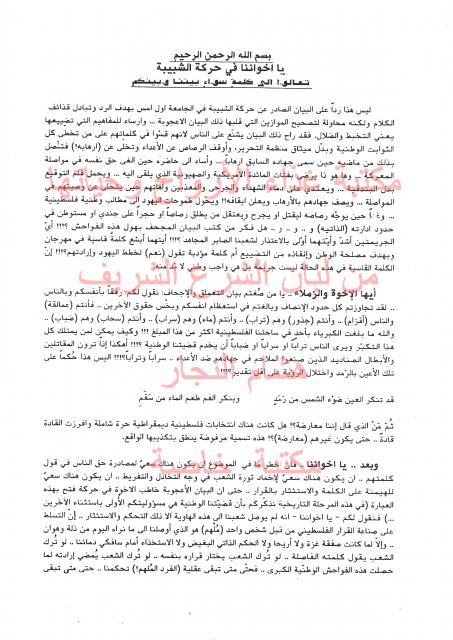 بسم الله الرحمن الرحيم
يا اخواننا في حركة الشبيبة
تعالوا الى كلمة سواء بيننا وبينكم
ليس هذا رداً على البيان الصادر عن حركة الشبيبة في الجامعة اول امس بهدف الرد وتبادل قذائف
الكلام ولكنه محاولة لتصحيح الموازين التي قلبها ذلك البيان الاعجوبة .. وارساء للمفاهيم التي تضييعها
يعني التخبط والضلال. فقد راح ذلك البيان يشنّع على الناس لانهم قسوا في كلماتهم على من تخطى كل
الثوابت الوطنية وبدّل ميثاق منظمة التحرير، وأوقف الرصاص عن الأعداء وتخلى عن (ارهابه)! فتنصّل
بذلك من ماضيه حين سمى جهاده السابق ارهاباً .. وأساء الى حاضره حين الغى حق نفسه في مواصلة
المعركة .. وها هو ذا يرضى بفتات المائدة الأمريكية والصهيونية الذي يلقى اليه .. ويحمل قلم التوقيع
بدل البندقية .. ويعتدي على دماء الشهداء والجرحى والمعذبين وآهاتهم حين يتخلى عن وصيتهم في
المواصلة .. ويصف جهادهم بالأرهاب ويعلن ايقافه!! ويحوّل طموحات اليهود الى مطالب وطنية فلسطينية
حين يوجّه رصاصه ليقتل او يجرح ويعتقل من يطلق رصاصا او حجراً على جندي او مستوطن في
حدود ادارته (الذاتية) و .. و .. و .. هل فكر من كتب البيان المجحف بهول هذه الفواحش ؟!! أيّ
الجريمتين أشدّ وأيّتهما أولى بالاعتذار لشعبنا الصابر المجاهد ؟!! أيتهما أبشع كلمة قاسية في مهرجان
وبهدف مصلحة الوطن وإنقاذه من التضييع أم كلمة مؤدبة تقول (نعم) لخطط اليهود وإرادتهم؟!! إنّ
الكلمة القاسية في هذه الحالة ليست جريمة بل هي واجب وطني لا بدّ منه.
أيها الإخوة والزملاء .. يا من صُغتم بيان التعملق والإجحاف، نقول لكم، رفقاً بأنفسكم وبالناس
.. لقد تجاوزتم كل حدود الإنصاف وبالغتم في استعظام أنفسكم وبخس حقوق الآخرين .. فأنتم (عمالقة)
والناس (أقزام) .. وأنتم (جذور) وهم (تراب) .. وأنتم (ماء) وهم (سراب) .. وأنتم (سحاب) وهم (ضباب) ..
والله ما بلغت الكبرياء بأحدٍ في ساحتنا الفلسطينية اكثر من هذا المبلغ !!! وكيف يمكن لمن يمتلك كل
هذا التكبّر ويرى الناس تراباً او سراباً او ضباباً أن يخدم قضيتنا الوطنية ؟!! أهكذا إذاً ترون المقاتلين
والأبطال الصناديد الذين صنعوا الملاحم في جهادهم ضد الأعداء .. سراباً وتراباً؟!! اليس هذا حُكماً على
تلك الأعين بالرّمد واختلال الرؤية على أقل تقدير؟!!!
قد تنكر العين ضوْء الشمس من رَمَدٍ وينكر الفم طعم الماء من سَقَمِ
ثُم مَنْ الذي قال إننا معارضة؟! هل كانت هناك انتخابات فلسطينية ديمقراطية حرة شاملة وأفرزت القادة
قادة .. حتى يكون غيرهم (معارضة)؟! هذه تسمية مرفوضة ينطق بتكذيبها الواقع.
وبعد .. يا اخواننا .. فإن أخطر ما في الموضوع ان يكون هناك سعيٌ لمصادرة حق الناس في قول
كلمتهم .. ان يكون هناك سعيٌ لإخماد ثورة الشعب في وجه التخاذل والتفريط .. ان يكون هناك سعيٌ
للهيمنة على الكلمة والاستئثار بالقرار .. حتى ان البيان الأعجوبة خاطب الاخوة في حركة فتح بهذه
العبارة (في هذه المرحلة التاريخية نذكّركم بأن قضيّتنا الوطنية هي مسؤوليتكم الأولى باستثناء الآخرين
...) فنقول لكم - يا اخواننا - انه لم يوصل شعبنا الى هذه الهاوية الا ذلك التحكم والاستئثار .. إنّ التسلط
على صناعة القرار الفلسطيني من قبل شخص واحد (مُلْهم) هو الذي أوصلنا الى ما نراه اليوم من ذلة وهوان
.. وإلاّ لما كانت صفقة غزة ولا أريحا ولا الحكم الذاتي البغيض ولا الاستخذاء أمام سافكي دمائنا .. لو تُرك
الشعب يقول كلمته الفاصلة .. لو تُرك الشعب يختار قراره بنفسه .. لو تُرك الشعب يُمضي إرادته لما
حصلت هذه الفواحش الوطنيّة الكبرى .. فحتّى متى تبقى عقلية (الفرد المُلهم)! تحكمنا .. حتى متى تبقى
هشام النجار